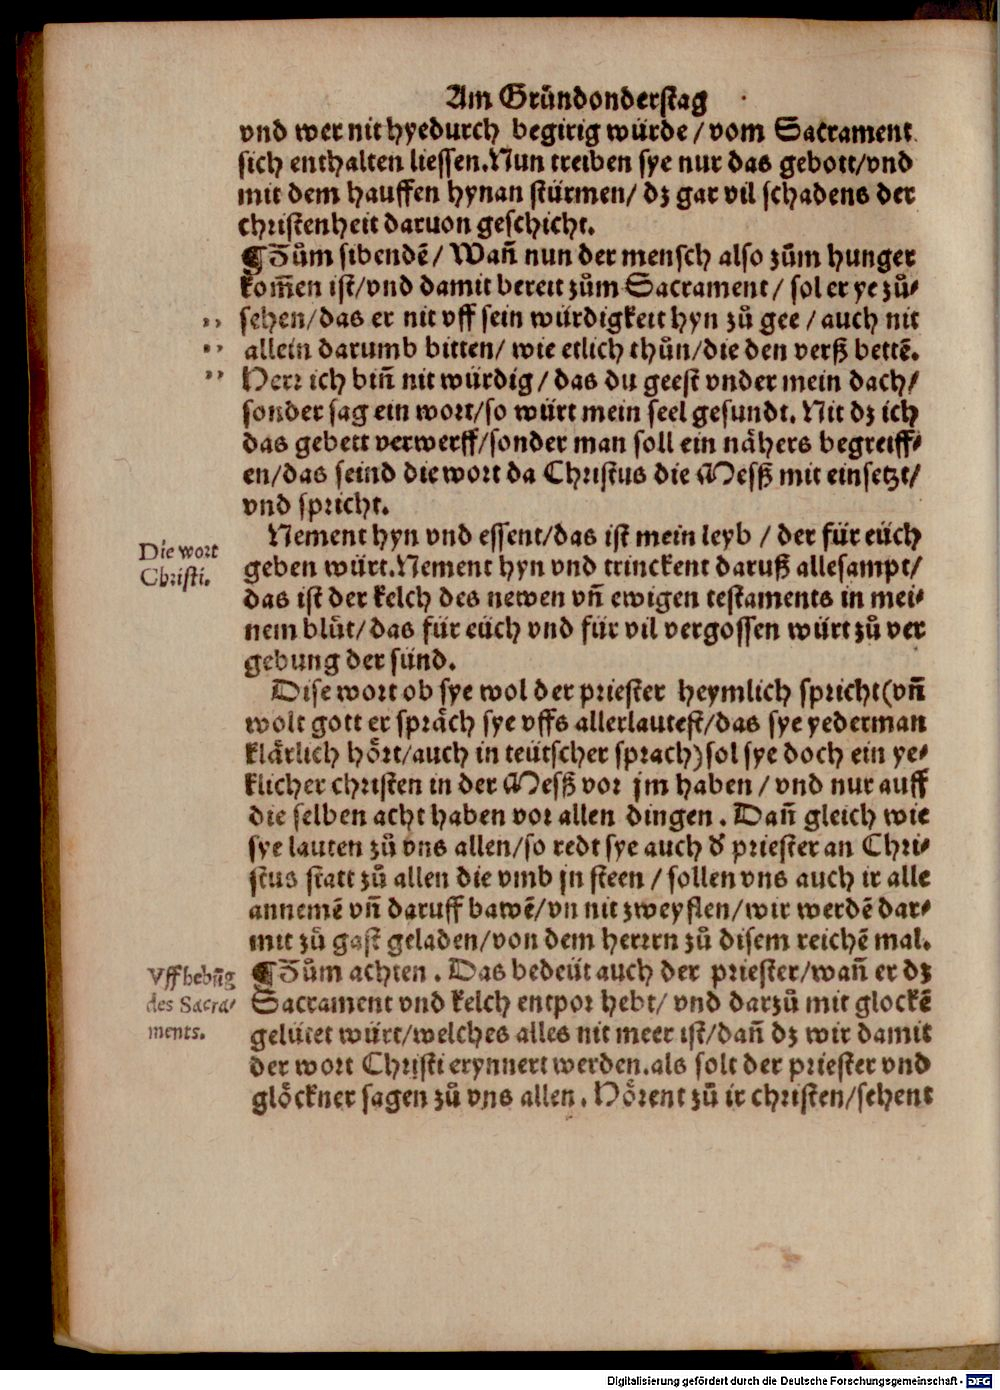 Am Gründonderstag
vnd wer nit hyedurch begirig würde / vom Sacrament
sich enthalten liessen. Nun treiben sye nur das gebott/vnd
mit dem hauffen hynan stürmen/ dz gar vil schadens der
christenheit daruon geschicht.
¶Zům sibendē/ Wañ nun der mensch also zům hunger
kom̄en ist/vnd damit bereit zům Sacrament/ sol er ye zů⸗
sehen/das er nit vff sein würdigkeit hyn zů gee / auch nit
allein darumb bitten/ wie etlich thůn/die den verß bettē.
Herr ich biñ nit würdig / das du geest vnder mein dach/
sonder sag ein wort/so würt mein seel gesundt. Nit dz ich
das gebett verwerff/sonder man soll ein nähers begreiff⸗
en/das seind die wort da Christus die Mesß mit einsetzt/
vnd spricht.
Die wort
Christi.
Nement hyn vnd essent/das ist mein leyb / der für eüch
geben würt. Nement hyn vnd trinckent daruß allesampt/
das ist der kelch des newen vñ ewigen testaments in mei⸗
nem blůt/das für eüch vnd für vil vergossen würt zů ver
gebung der sünd.
Dise wort ob sye wol der priester heymlich spricht (vñ
wolt gott er spräch sye vffs allerlautest/das sye yederman
klärlich hört/auch in teütscher sprach) sol sye doch ein ye⸗
klicher christen in der Mesß vor jm haben / vnd nur auff
die selben acht haben vor allen dingen. Dañ gleich wie
sye lauten zů vns allen/so redt sye auch d' priester an Chri⸗
stus statt zů allen die vmb jn steen / sollen vns auch ir alle
annemē vñ daruff bawē/vn nit zweyflen/wir werdē dar⸗
mit zů gast geladen/von dem herrrn zů disem reichē mal.
Vffhebūg
des Sacra⸗
ments.
¶Zům achten. Das bedeüt auch der priester/wañ er dz
Sacrament vnd kelch entpor hebt/ vnd darzů mit glockē
gelütet würt/welches alles nit meer ist/dañ dz wir damit
der wort Christi erynnert werden. als solt der priester vnd
glöckner sagen zů vns allen. Hörent zů ir christen/sehent
Digitalisierung gefördert durch die Deutsche Forschungsgemeinschaft - DFG